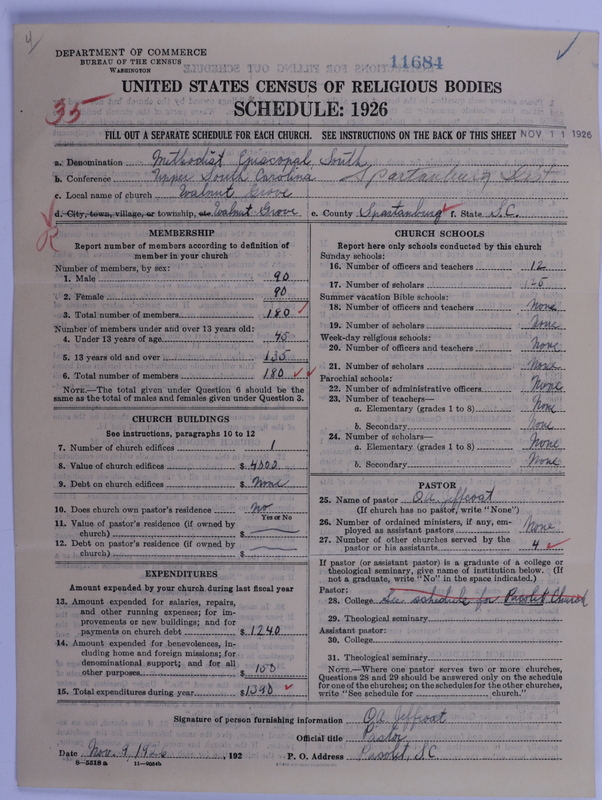 4
DEPARTMENT OF COMMERCE
BUREAU OF THE CENSUS
WASHINGTON
11684
UNITED STATES CENSUS OF RELIGIOUS BODIES
SCHEDULE: 1926
35
FILL OUT A SEPARATE SCHEDULE FOR EACH CHURCH. SEE INSTRUCTIONS ON THE BACK OF THIS SHEET NOV 11 1926
a. Denomination Methodist Episcopal, South
b. Conference Upper South Carolina Spartanburg Dist
c. Local name of church Walnut Grove
d. City, town, village, or township, etc Walnut Grove e. County Spartanburg f. State S.C.
R
MEMBERSHIP
Report number of members according to definition of
member in your church
Number of members, by sex:
1. Male 90
2. Female 90
3. Total number of members 180
Number of members under and over 13 years old:
4. Under 13 years of age 45
5. 13 years old and over 135
6. Total number of members 180
NOTE.—The total given under Question 6 should be the
same as the total of males and females given under Question 3.
CHURCH BUILDINGS
See instructions, paragraphs 10 to 12
7. Number of church edifices 1
8. Value of church edifices $ 4000
9. Debt on church edifices $ None
10. Does church own pastor's residence no
Yes or No
11. Value of pastor's residence (if owned by
church) $
12. Debt on pastor's residence (if owned by
church) $
EXPENDITURES
Amount expended by your church during last fiscal year
13. Amount expended for salaries, repairs,
and other running expenses; for im-
provements or new buildings; and for
payments on church debt $ 1240
14. Amount expended for benevolences, in-
cluding home and foreign missions; for
denominational support; and for all
other purposes $
15. Total expenditures during year $
CHURCH SCHOOLS
Report here only schools conducted by this church
Sunday schools:
16. Number of officers and teachers 12
17. Number of scholars 125
Summer vacation Bible schools:
18. Number of officers and teachers None
19. Number of scholars None
Week-day religious schools:
20. Number of officers and teachers None
21. Number of scholars None
Parochial schools:
22. Number of administrative officers None
23. Number of teachers—
a. Elementary (grades 1 to 8) None
b. Secondary None
24. Number of scholars—
a. Elementary (grades 1 to 8) None
b. Secondary None
PASTOR
25. Name of pastor O.A. Jeffcoat
(If church has no pastor, write "None")
26. Number of ordained ministers, if any, em-
ployed as assistant pastors None
27. Number of other churches served by the
pastor or his assistants 4
If pastor (or assistant pastor) is a graduate of a college or
theological seminary, give name of institution below. (If
not a graduate, write "No" in the space indicated.)
Pastor:
28. College See schedule for Pacolet Church
29. Theological seminary
Assistant pastor:
30. College
31. Theological seminary
NOTE.—Where one pastor serves two or more churches,
Questions 28 and 29 should be answered only on the schedule
for one of the churches; on the schedules for the other churches,
write "See schedule for church."
Signature of person furnishing information O.A. Jeffcoat
Official title Pastor
Date Nov. 9, 1926, 192 P. O. Address Pacolet, S.C.
8—5518 a 11—9054b